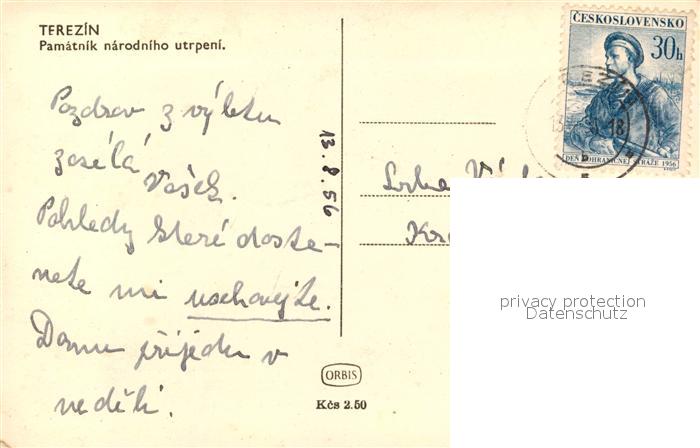 TEREZÍN
Památník národního utrpení.
Pozdrav z výletu
zasílá
Vašek.
Pohledy které dosta-
nete mi uschovejte.
Domu přijedu v
neděli.
13.8.56
ČESKOSLOVENSKO
30h
DEN POHRANIČNÍ STRÁŽE 1956
18
ORBIS
Kčs 2.50
privacy protection
Datenschutz